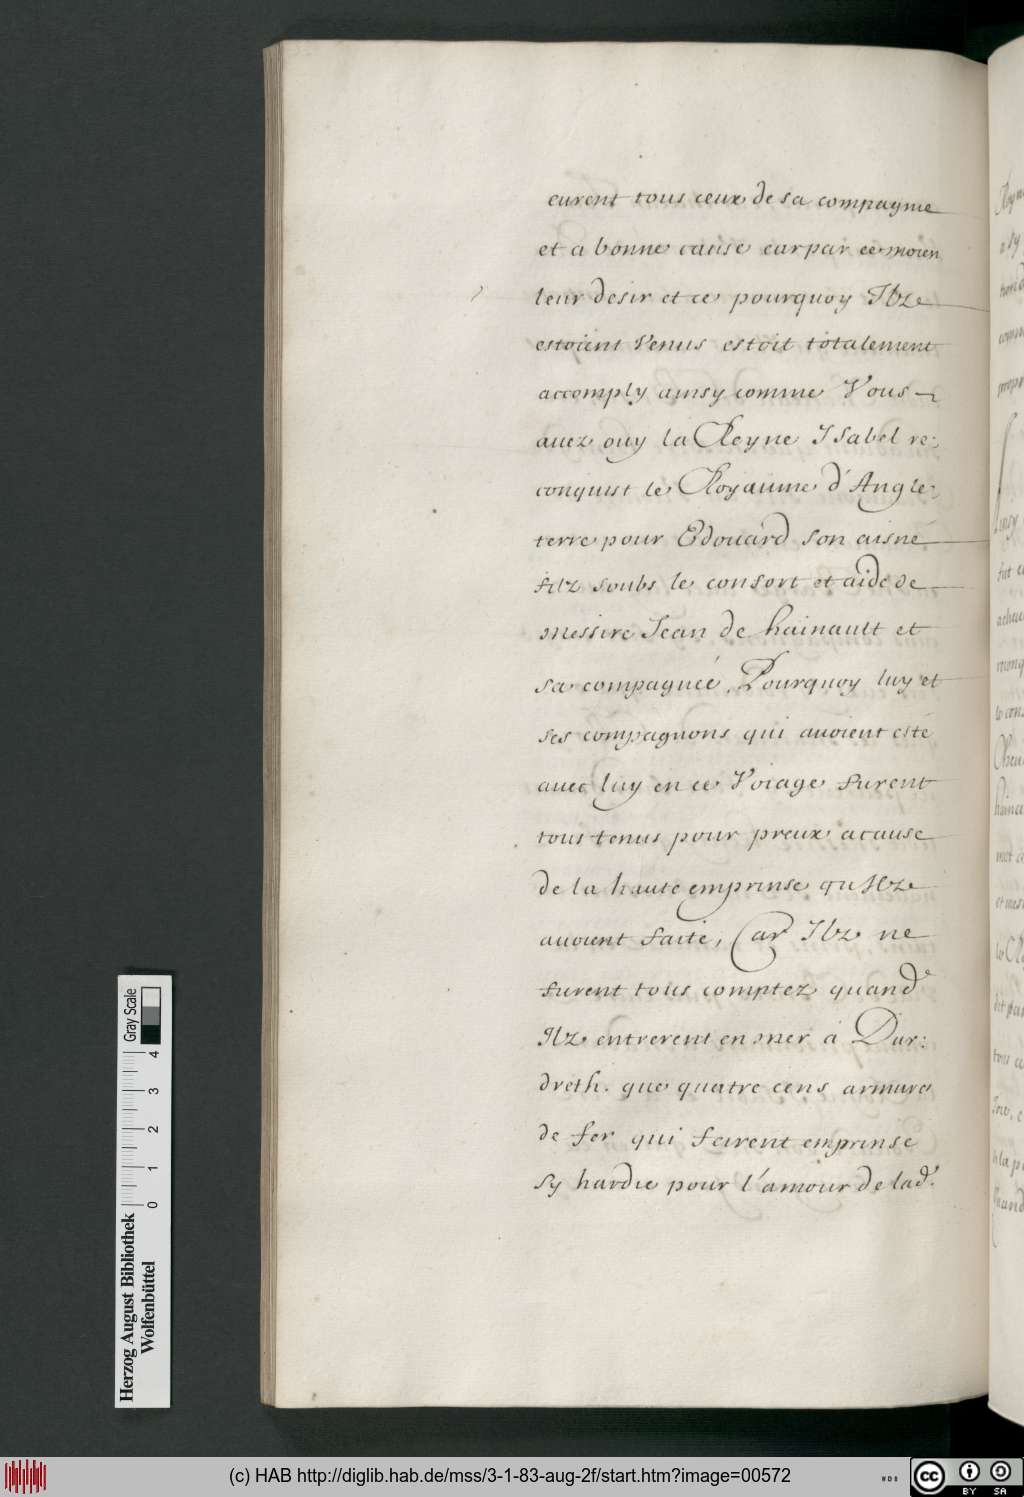 eurent tous ceux de sa compagnie
et a bonne cause car par ce moien
leur desir et ce pourquoy Ilze
estoient venus estoit totalement
accomply ainsy comme Vous
auez ouy la Royne Isabel re:
conquist le Royaume d'Angle:
terre pour Edouard son aisné
filz soubs le confort et aide de
messire Jean de hainault et
sa compagnée, Pourquoy luy et
ses compagnons qui auoient esté
auec luy en ce Voiage furent
tous tenus pour preux acause
de la haute emprinse qu Ilze
auoient faite, Car Ilz ne
furent tous comptez quand
Ilz entrerent en mer à Dur:
dreth. que quatre cens armure
de fer qui feirent emprinse
sy hardie pour l'amour de lad.e
Herzog August Bibliothek
Wolfenbüttel
0 1 2 3 4
Gray Scale
(c) HAB http://diglib.hab.de/mss/3-1-83-aug-2f/start.htm?image=00572
WDB
cc BY SA